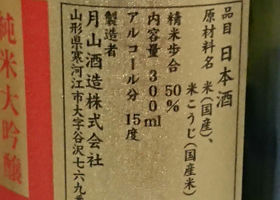 品目 日本酒
原材料名 米(国産)、
米こうじ(国産米)
精米歩合 50%
内容量 300ml
アルコール分 15度
製造者
月山酒造株式会社
山形県寒河江市大字谷沢七六九番
純米大吟醸